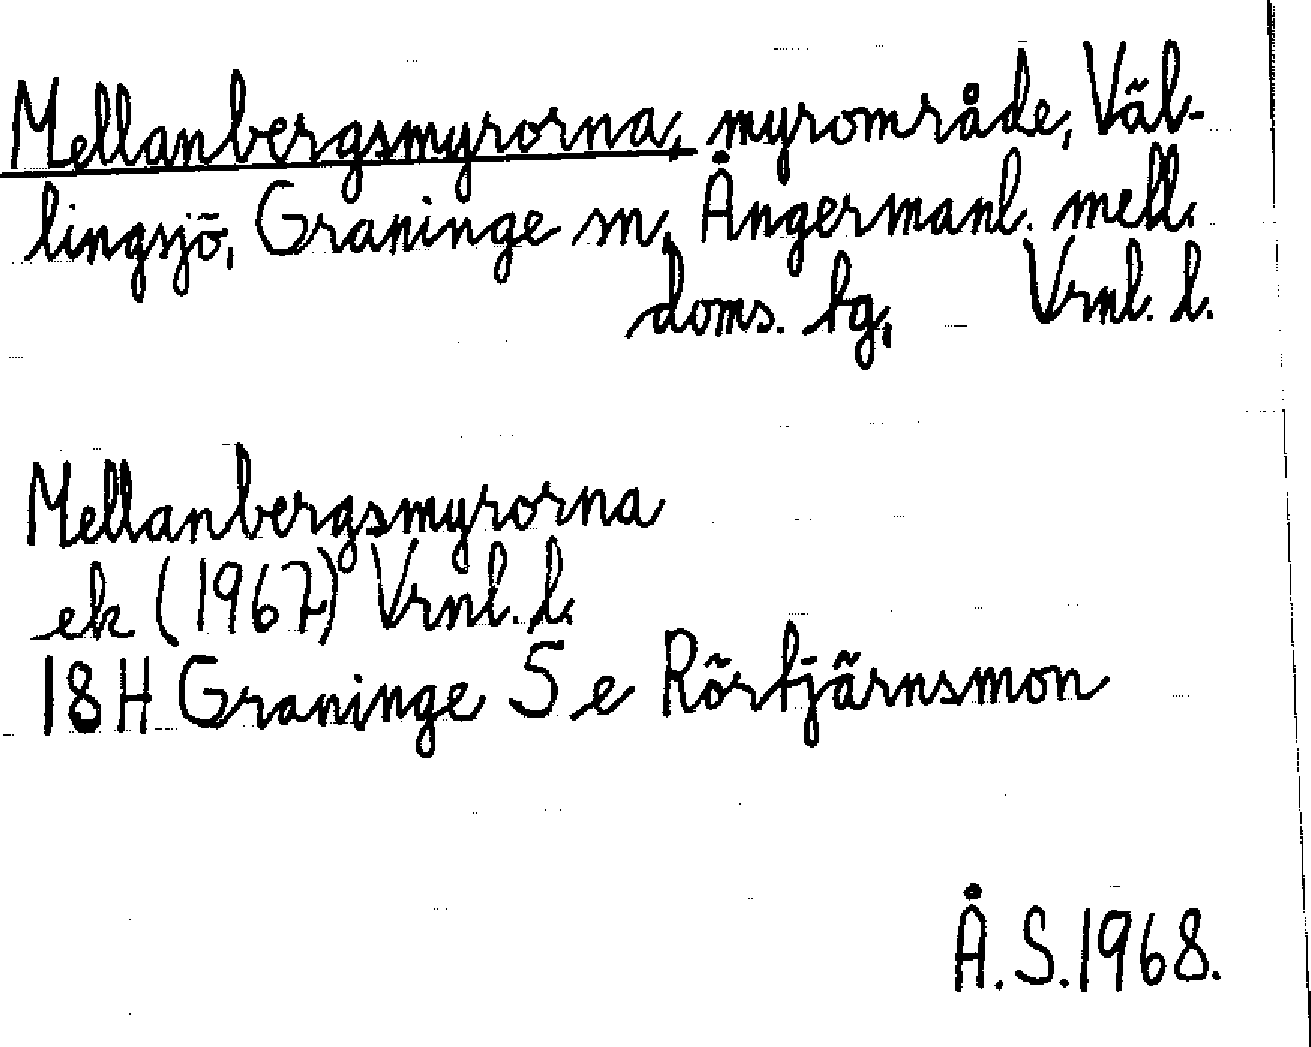 Mellanbergsmyrorna, myrområde, Väl-
lingsjö, Graninge sn, Ångermanl. mell.
doms. tg, Vrnl. l.
Mellanbergsmyrorna
ek (1967) Vrnl. l.
18H Graninge 5 e Rörtjärnsmon
Å.S.1968.